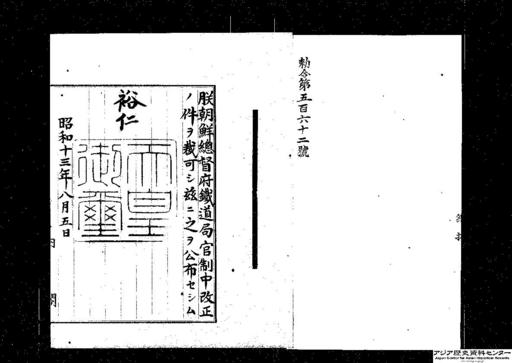 勅令第五百六十二號
朕朝鮮總督府鐵道局官制中改正
ノ件ヲ裁可シ茲ニ之ヲ公布セシム
裕仁
天皇
御璽
昭和十三年八月五日
内閣
アジア歴史資料センター
Japan Center for Asian Historical Records